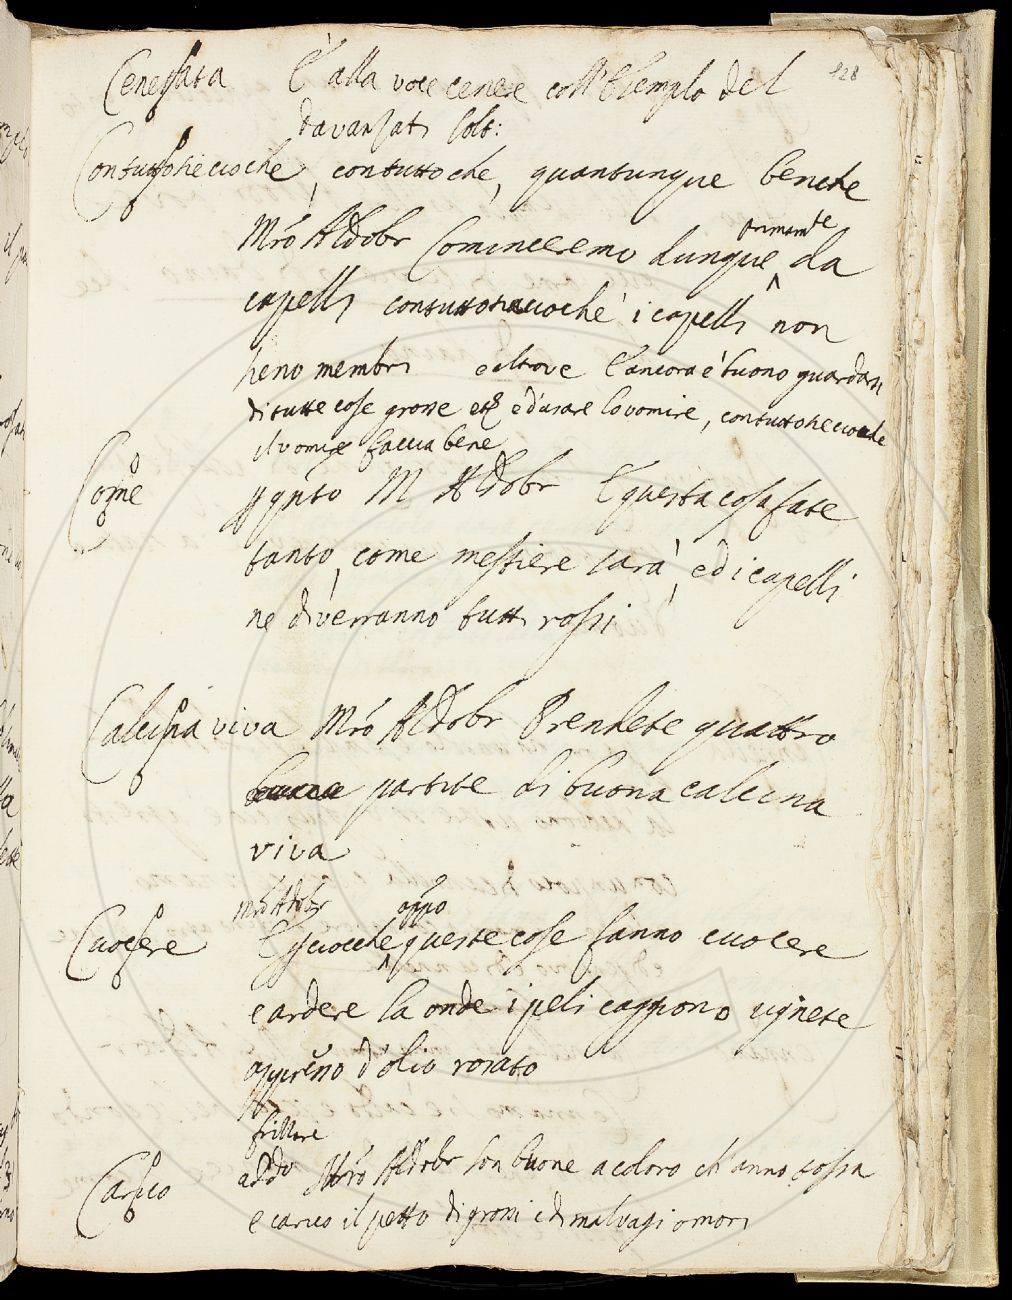 128
Cenerata È alla voce cenere coll'Esempio del
Davanzati Colt:
Contuttosiecioche, contuttoche, quantunque benche
Mro Aldobr Cominceremo dunque primamte da
capelli contuttosiecioche i capelli non
sieno membri e altrove E ancora è buono guardarsi
di tutte cose grosse etc e d'usare lo vomire, contuttosiecioche
il vomire faccia bene
Come M Aldobr E questa cosa fate
tanto, come mestiere sarà, ed i capelli
ne diverranno tutti rossi
Calcina viva Mro Aldobr Prendete quattro
partite di buona calcina
viva
Mro Aldobr
Cuocere E poiche queste cose fanno cuocere
e ardere la onde i peli caggiono ugnete
appresso d'olio rosato
frittore
Carico addo Mro Aldobr son buone a coloro ch'anno tossa
e carico il petto di grossi e di malvagi omori